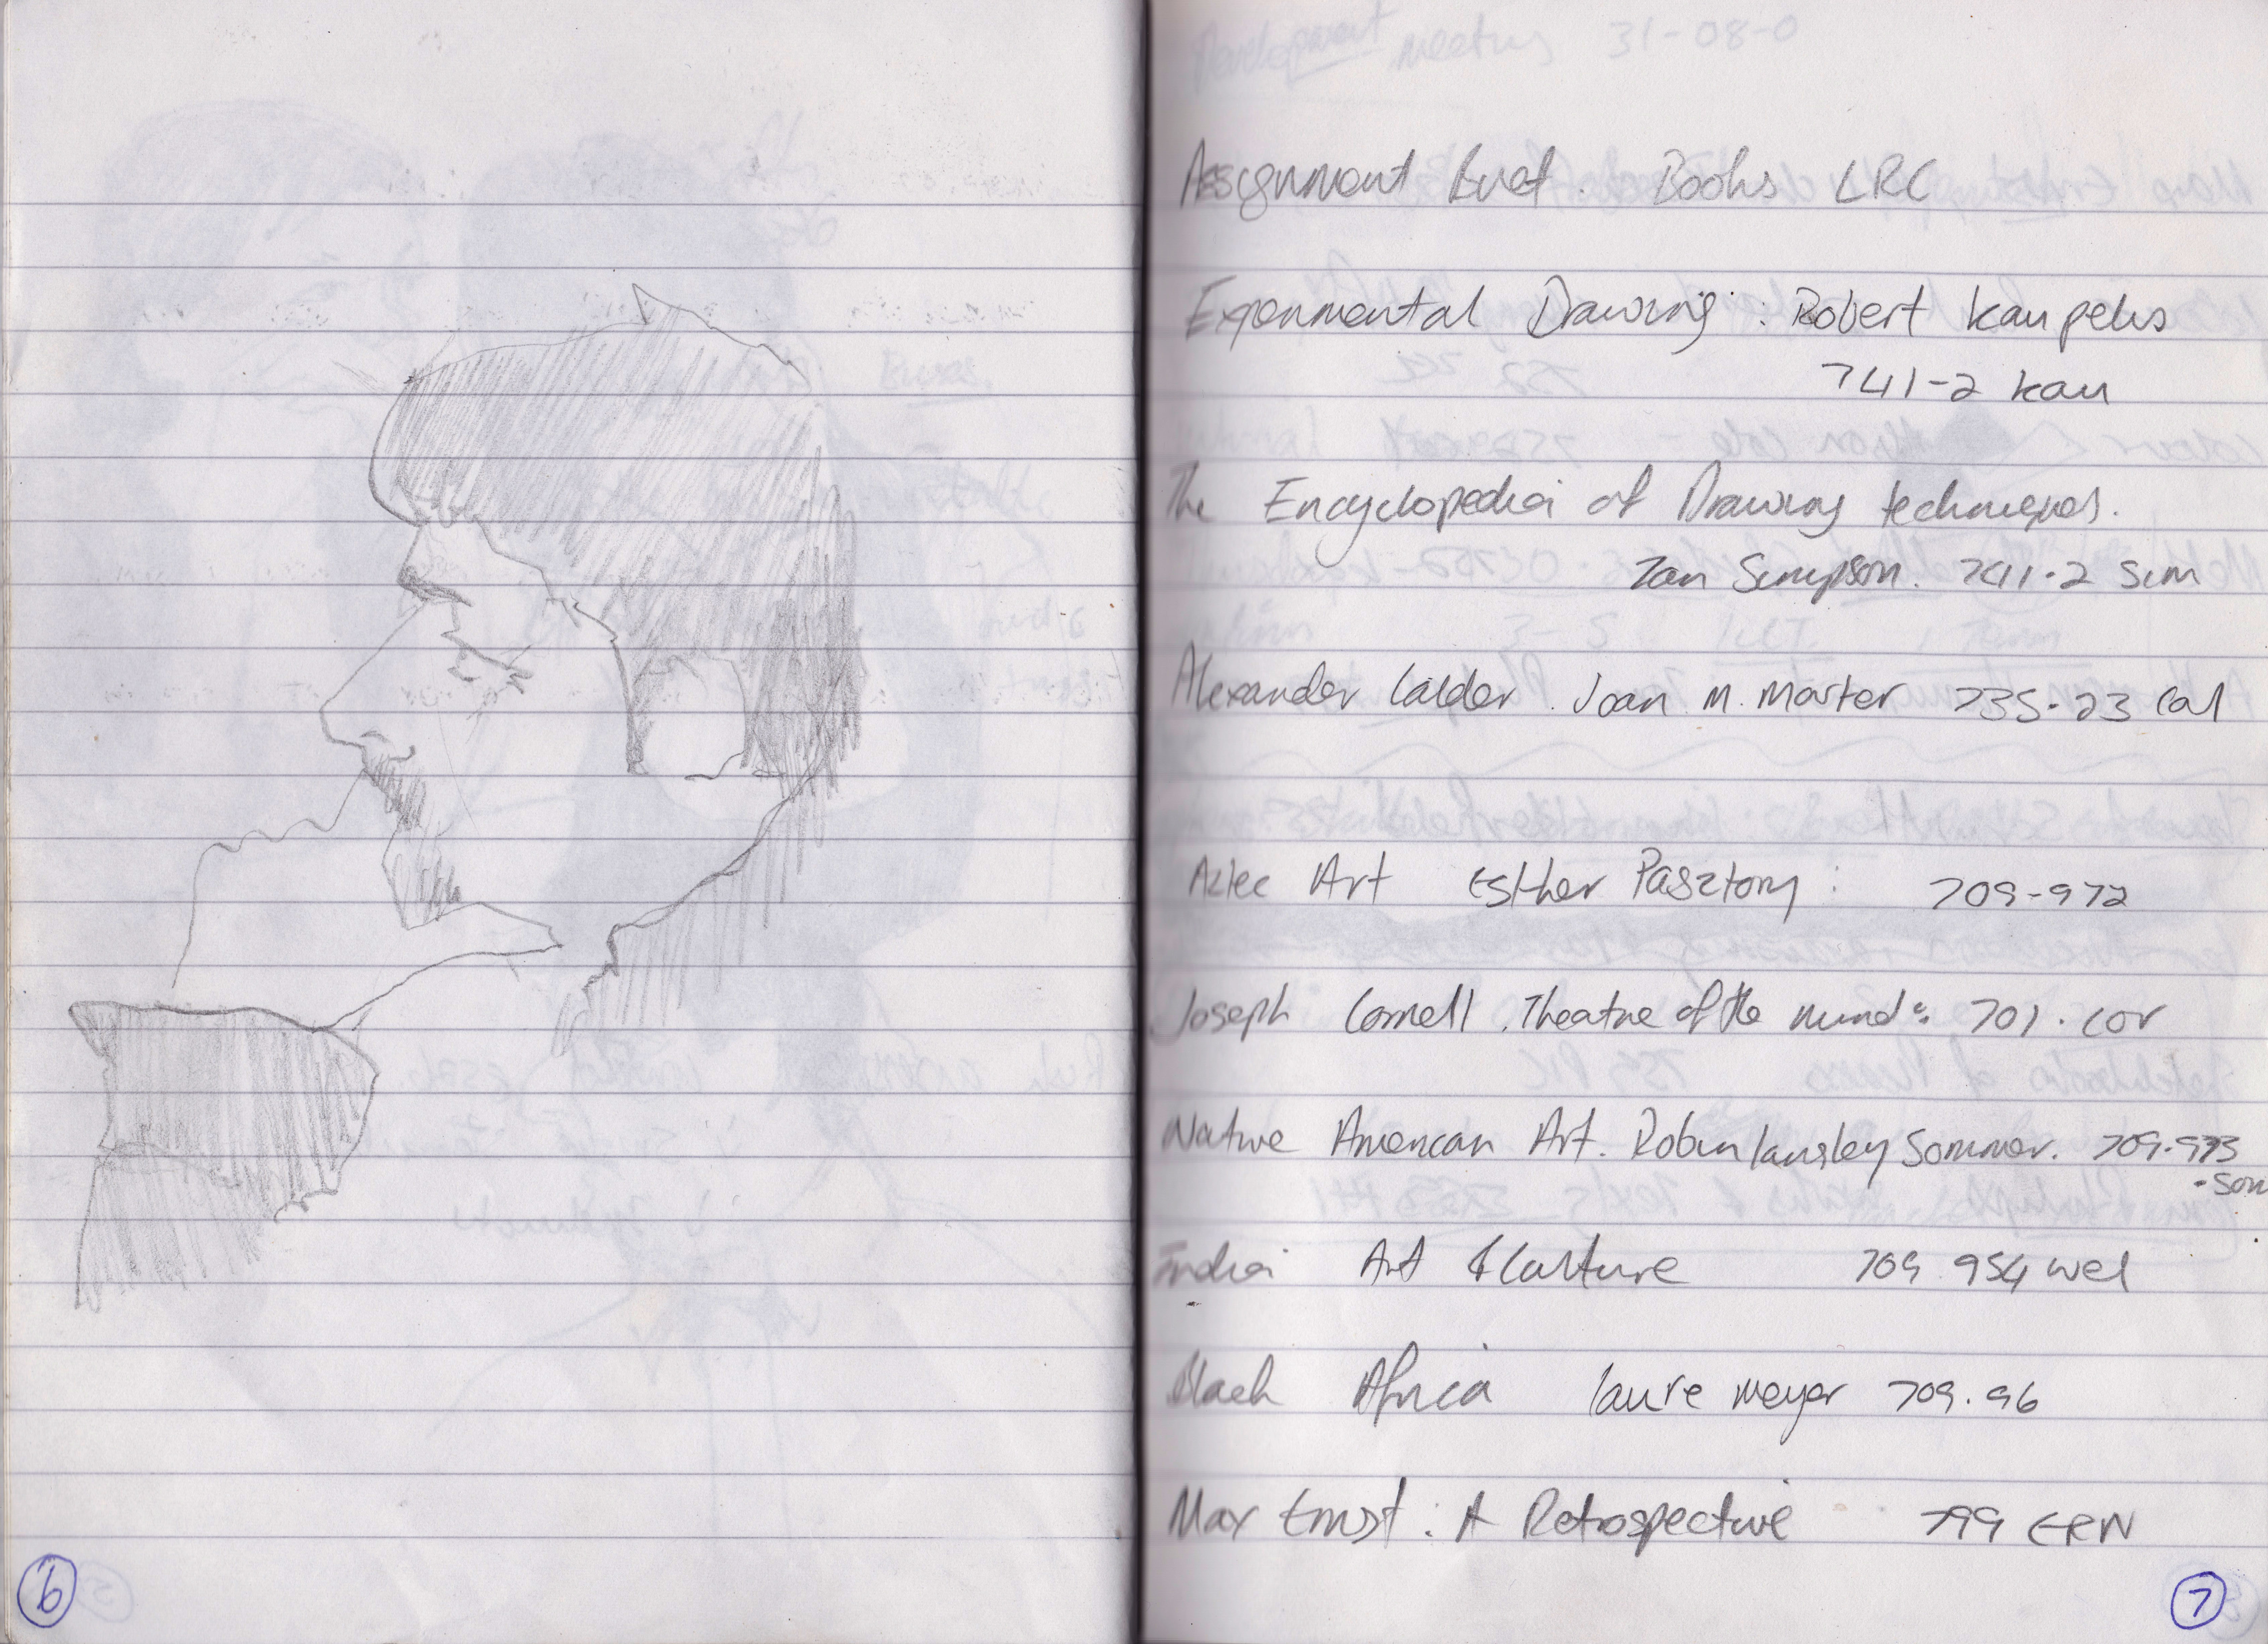 Development meeting 31-08-0
Assignment Books LRC
Experimental Drawing : Robert Kaupelis
741-2 kau
The Encyclopedia of Drawing techniques.
Ian Simpson. 741.2 Sim
Alexander Calder. Joan M. Marter 735.23 Cal
Aztec Art Esther Pasztory : 709-972
Joseph Cornell. Theatre of the mind : 701. cor
Native American Art. Robin Langley Sommer. 709.973
.Som
India Art & Culture 709 954 wel
Black Africa Laure Meyer 709.96
Max Ernst : A Retrospective 799 ERN
6
7